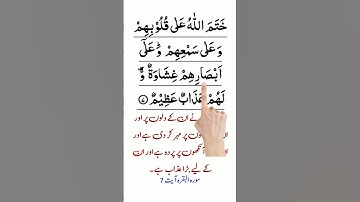 خَتَمَ اللّٰهُ عَلٰى قُلُوْبِهِمْ
وَ عَلٰى سَمْعِهِمْ ؕ وَ عَلٰۤى
اَبْصَارِهِمْ غِشَاوَةٌ ؗ وَّ
لَهُمْ عَذَابٌ عَظِیْمٌ ۷
نے ان کے دلوں پر اور
وں پر مہر کر دی ہے اور
آنکھوں پر پردہ ہے اور ان
کے لیے بڑا عذاب ہے۔
سورہ البقرہ آیت 7